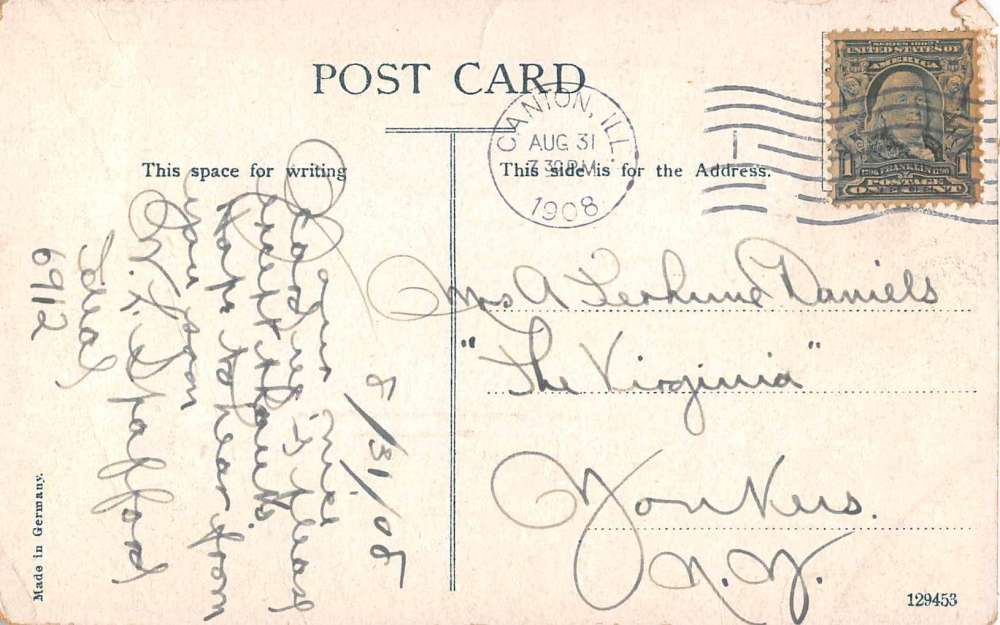 POST CARD
This space for writing
This side is for the Address.
CANTON, ILL.
AUG 31
7 30 PM
1908
1
SERIES 1902
UNITED STATES OF
AMERICA
1 FRANKLIN 1
POSTAGE
ONE CENT
8/31/08
Your nice
card Please
accept thanks.
Hope to hear from
you soon
Spafford
Total
6912
Mrs A Terhune Daniels
"The Virginia"
Yonkers.
N.Y.
Made in Germany.
129453